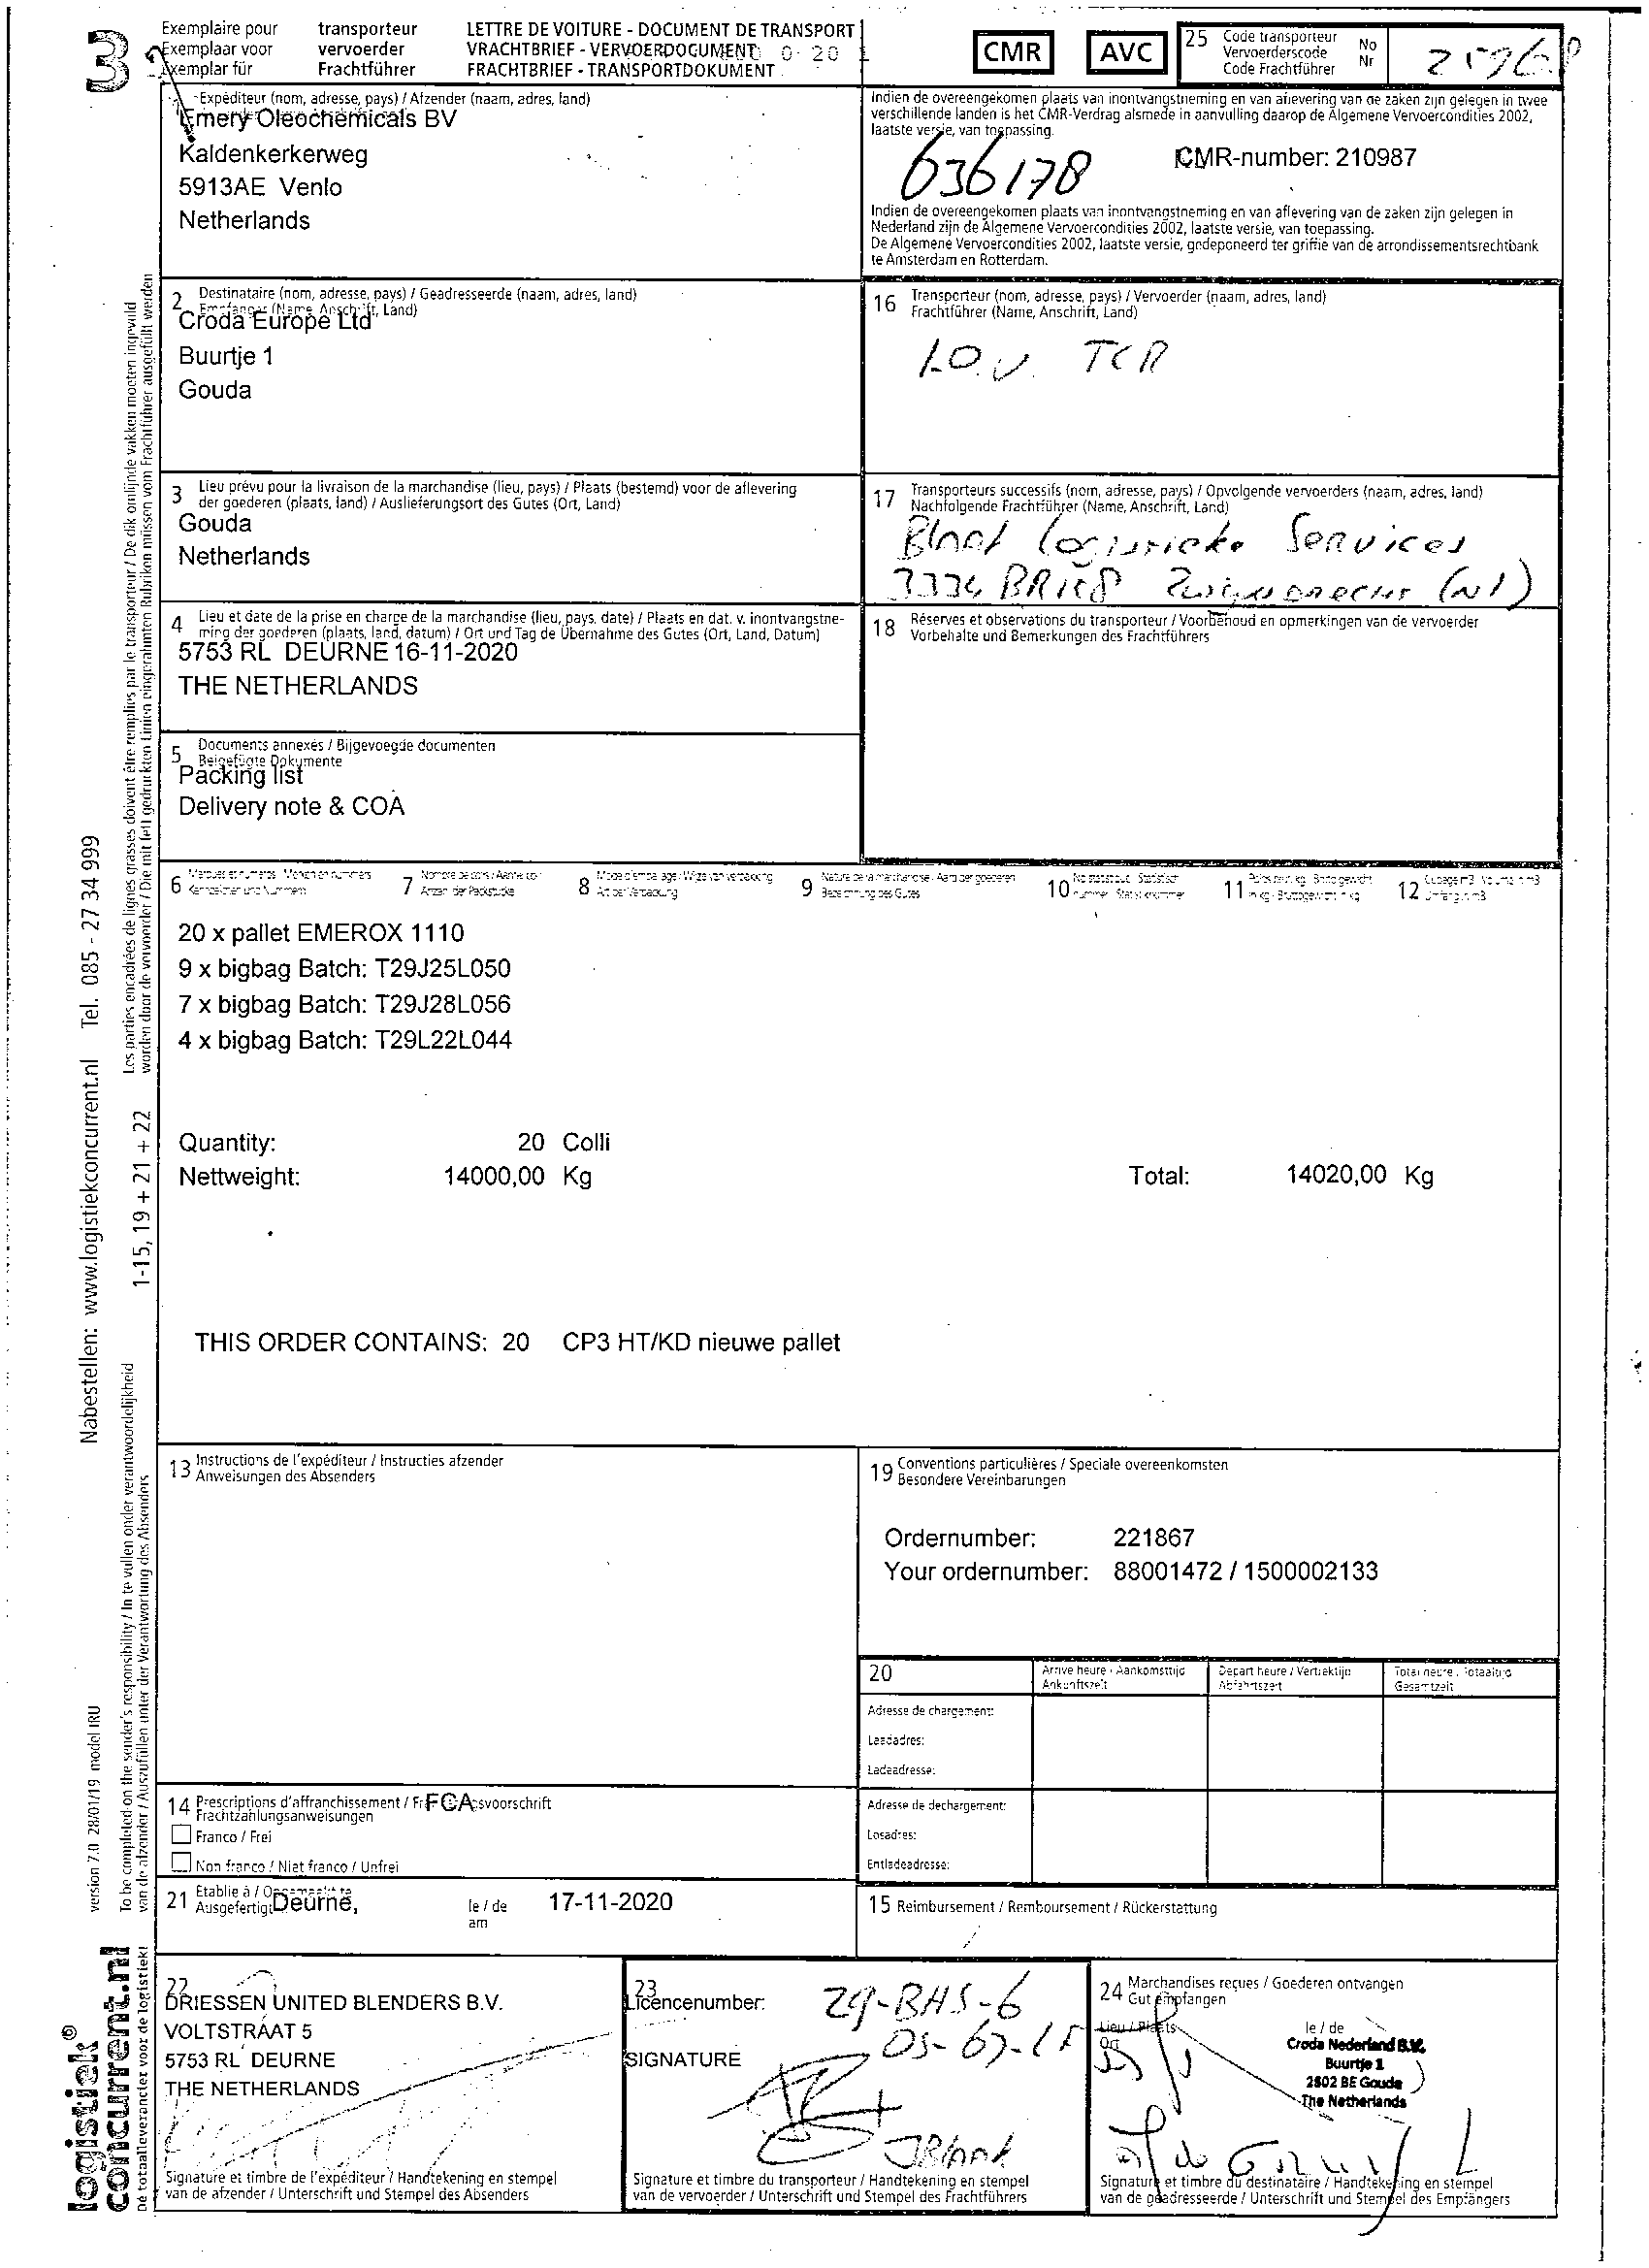 3
Exemplaire pour transporteur
Exemplaar voor vervoerder
Exemplar für Frachtführer
LETTRE DE VOITURE - DOCUMENT DE TRANSPORT
VRACHTBRIEF - VERVOERDOCUMENT
FRACHTBRIEF - TRANSPORTDOKUMENT
CMR
AVC
25 Code transporteur
Vervoerderscode
Code Frachtführer
No
Nr
Expéditeur (nom, adresse, pays) / Afzender (naam, adres, land)
Emery Oleochemicals BV
Kaldenkerkerweg
5913AE Venlo
Netherlands
Indien de overeengekomen plaats van inontvangstneming en van aflevering van de zaken zijn gelegen in twee
verschillende landen is het CMR-Verdrag alsmede in aanvulling daarop de Algemene Vervoercondities 2002,
laatste versie, van toepassing.
636178
CMR-number: 210987
Indien de overeengekomen plaats van inontvangstneming en van aflevering van de zaken zijn gelegen in
Nederland zijn de Algemene Vervoercondities 2002, laatste versie, van toepassing.
De Algemene Vervoercondities 2002, laatste versie, gedeponeerd ter griffie van de arrondissementsrechtbank
te Amsterdam en Rotterdam.
2 Destinataire (nom, adresse, pays) / Geadresseerde (naam, adres, land)
Empfänger (Name, Anschrift, Land)
Croda Europe Ltd
Buurtje 1
Gouda
16 Transporteur (nom, adresse, pays) / Vervoerder (naam, adres, land)
Frachtführer (Name, Anschrift, Land)
I.O.V. TCR
3 Lieu prévu pour la livraison de la marchandise (lieu, pays) / Plaats (bestemd) voor de aflevering
der goederen (plaats, land) / Auslieferungsort des Gutes (Ort, Land)
Gouda
Netherlands
17 Transporteurs successifs (nom, adresse, pays) / Opvolgende vervoerders (naam, adres, land)
Nachfolgende Frachtführer (Name, Anschrift, Land)
Logistieke Services
3334 Zwijndrecht (NL)
4 Lieu et date de la prise en charge de la marchandise (lieu, pays, date) / Plaats en dat. v. inontvangstne-
ming der goederen (plaats, land, datum) / Ort und Tag de Übernahme des Gutes (Ort, Land, Datum)
5753 RL DEURNE 16-11-2020
THE NETHERLANDS
18 Réserves et observations du transporteur / Voorbehoud en opmerkingen van de vervoerder
Vorbehalte und Bemerkungen des Frachtführers
5 Documents annexés / Bijgevoegde documenten
Beigefügte Dokumente
Packing list
Delivery note & COA
6 7 8 9 10 11 12
20 x pallet EMEROX 1110
9 x bigbag Batch: T29J25L050
7 x bigbag Batch: T29J28L056
4 x bigbag Batch: T29L22L044
Quantity: 20 Colli
Nettweight: 14000,00 Kg Total: 14020,00 Kg
THIS ORDER CONTAINS: 20 CP3 HT/KD nieuwe pallet
13 Instructions de l'expéditeur / Instructies afzender
Anweisungen des Absenders
19 Conventions particulières / Speciale overeenkomsten
Besondere Vereinbarungen
Ordernumber: 221867
Your ordernumber: 88001472 / 1500002133
20
Arrive heure / Aankomsttijd
Ankunftszeit
Depart heure / Vertrektijd
Abfahrtszeit
Gesamtzeit
Adresse de chargement:
Laadadres:
Ladeadresse:
Adresse de dechargement:
Losadres:
Entladeadresse:
14 Prescriptions d'affranchissement / FCA svoorschrift
Frachtzahlungsanweisungen
Franco / Frei
Non franco / Niet franco / Unfrei
21 Etablie à / Opgemaakt te
Ausgefertigt Deurne, le / de
am
17-11-2020
15 Reimbursement / Remboursement / Rückerstattung
22
DRIESSEN UNITED BLENDERS B.V.
VOLTSTRAAT 5
5753 RL DEURNE
THE NETHERLANDS
Signature et timbre de l'expéditeur / Handtekening en stempel
van de afzender / Unterschrift und Stempel des Absenders
23
Licencenumber: 29-BHS-6
SIGNATURE
Signature et timbre du transporteur / Handtekening en stempel
van de vervoerder / Unterschrift und Stempel des Frachtführers
24 Marchandises reçues / Goederen ontvangen
Gut empfangen
Lieu / Plaats
Ort
le / de
Croda Nederland B.V.
Buurtje 1
2802 BE Gouda
The Netherlands
Signature et timbre du destinataire / Handtekening en stempel
van de geadresseerde / Unterschrift und Stempel des Empfängers
Les parties encadrées de lignes grasses doivent être remplies par le transporteur / De dik omlijnde vakken moeten ingevuld
worden door de vervoerder / Die mit fett gedruckten Linien eingerahmten Rubriken müssen vom Frachtführer ausgefüllt werden
1-15, 19 + 21 + 22
To be completed on the sender's responsibility / In te vullen onder verantwoordelijkheid
van de afzender / Auszufüllen unter der Verantwortung des Absenders
Nabestellen: www.logistiekconcurrent.nl Tel. 085 - 27 34 999
version 7.0 28/01/19 model IRU
logistiek
concurrent.nl
Dé totaalleverancier voor de logistiek!